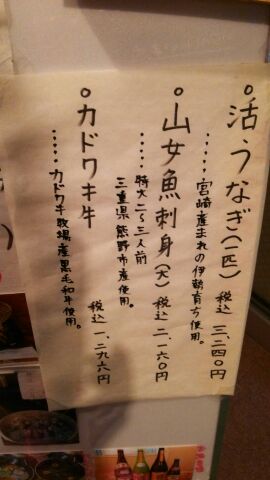 ○活うなぎ(一匹) 税込 三、二四〇円
……宮崎産まれの伊勢育ち使用。
○山女魚刺身(大) 税込 二、一六〇円
……特大二〜三人前
三重県熊野市産使用。
○カドワキ牛 税込 一、二九六円
……カドワキ牧場産黒毛和牛使用。